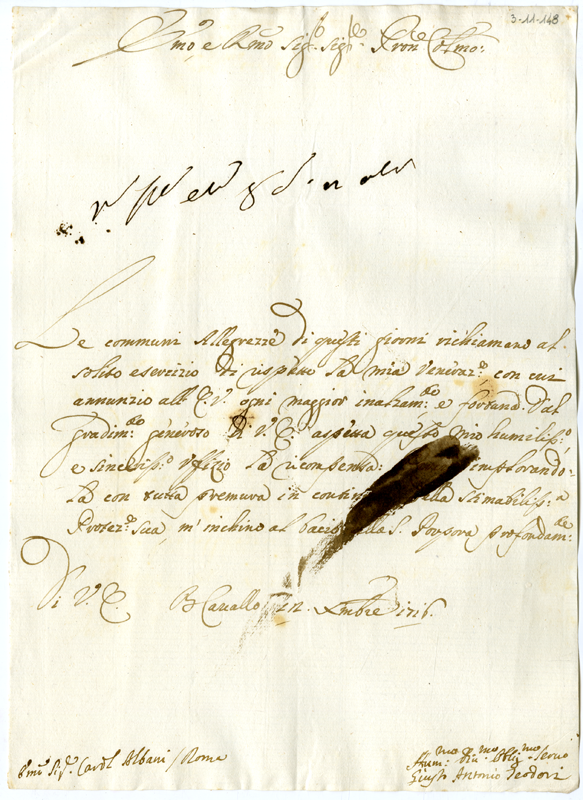 3-11-148
Emo, e Rmo Sigr. Sigr. Pron Colmo:
Le communi Allegrezze di questi giorni richiamano al
solito esercizio di rispetto la mia Veneraz.e con cui
annunzio all'E.V. ogni maggior inalzam.to e
gradim.to generoso di V.E. aspetta questo mio humiliss.o,
e sinceriss.o Uffizio la ricompensa: implorando-
la con tutta premura in contin della stimabiliss.a
Protez.e sua, m'inchino al bacio della S. Porpora profondam.te
Di V.E. Cavallo 12. Xmbre 1716.
Emo Sigr. Cardl Albani / Roma
Hum.mo Div.mo Oblig.mo Servo
Giusto Antonio Teodori